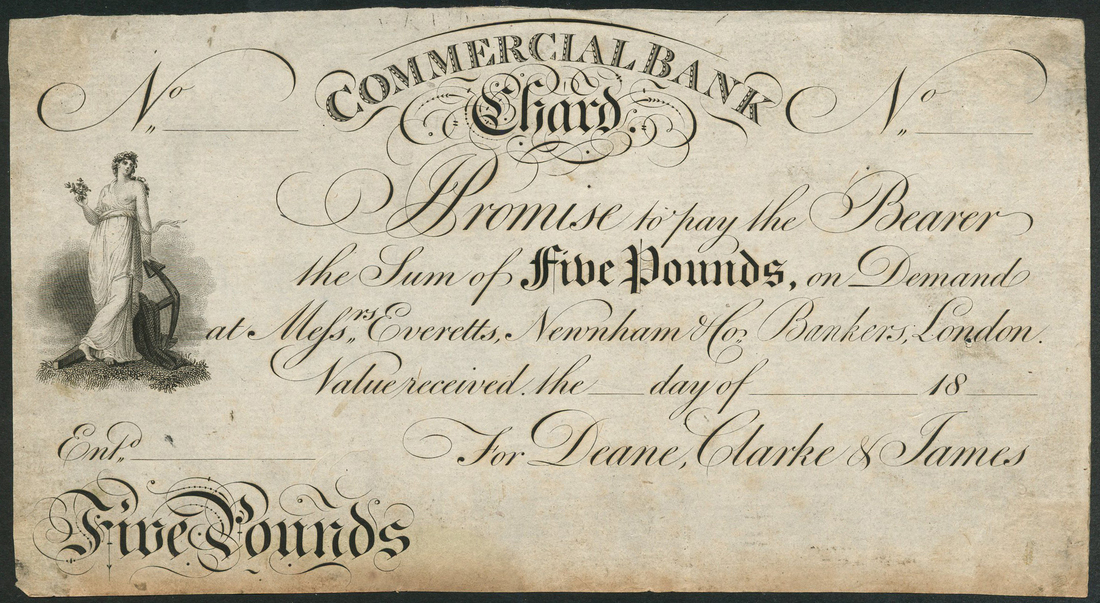 COMMERCIAL BANK
Chard.
No
No
I Promise to pay the Bearer
the Sum of Five Pounds, on Demand
at Messrs Everetts, Newnham & Co. Bankers, London.
Value received. the day of 18
Entd
For Deane, Clarke & James
Five Pounds